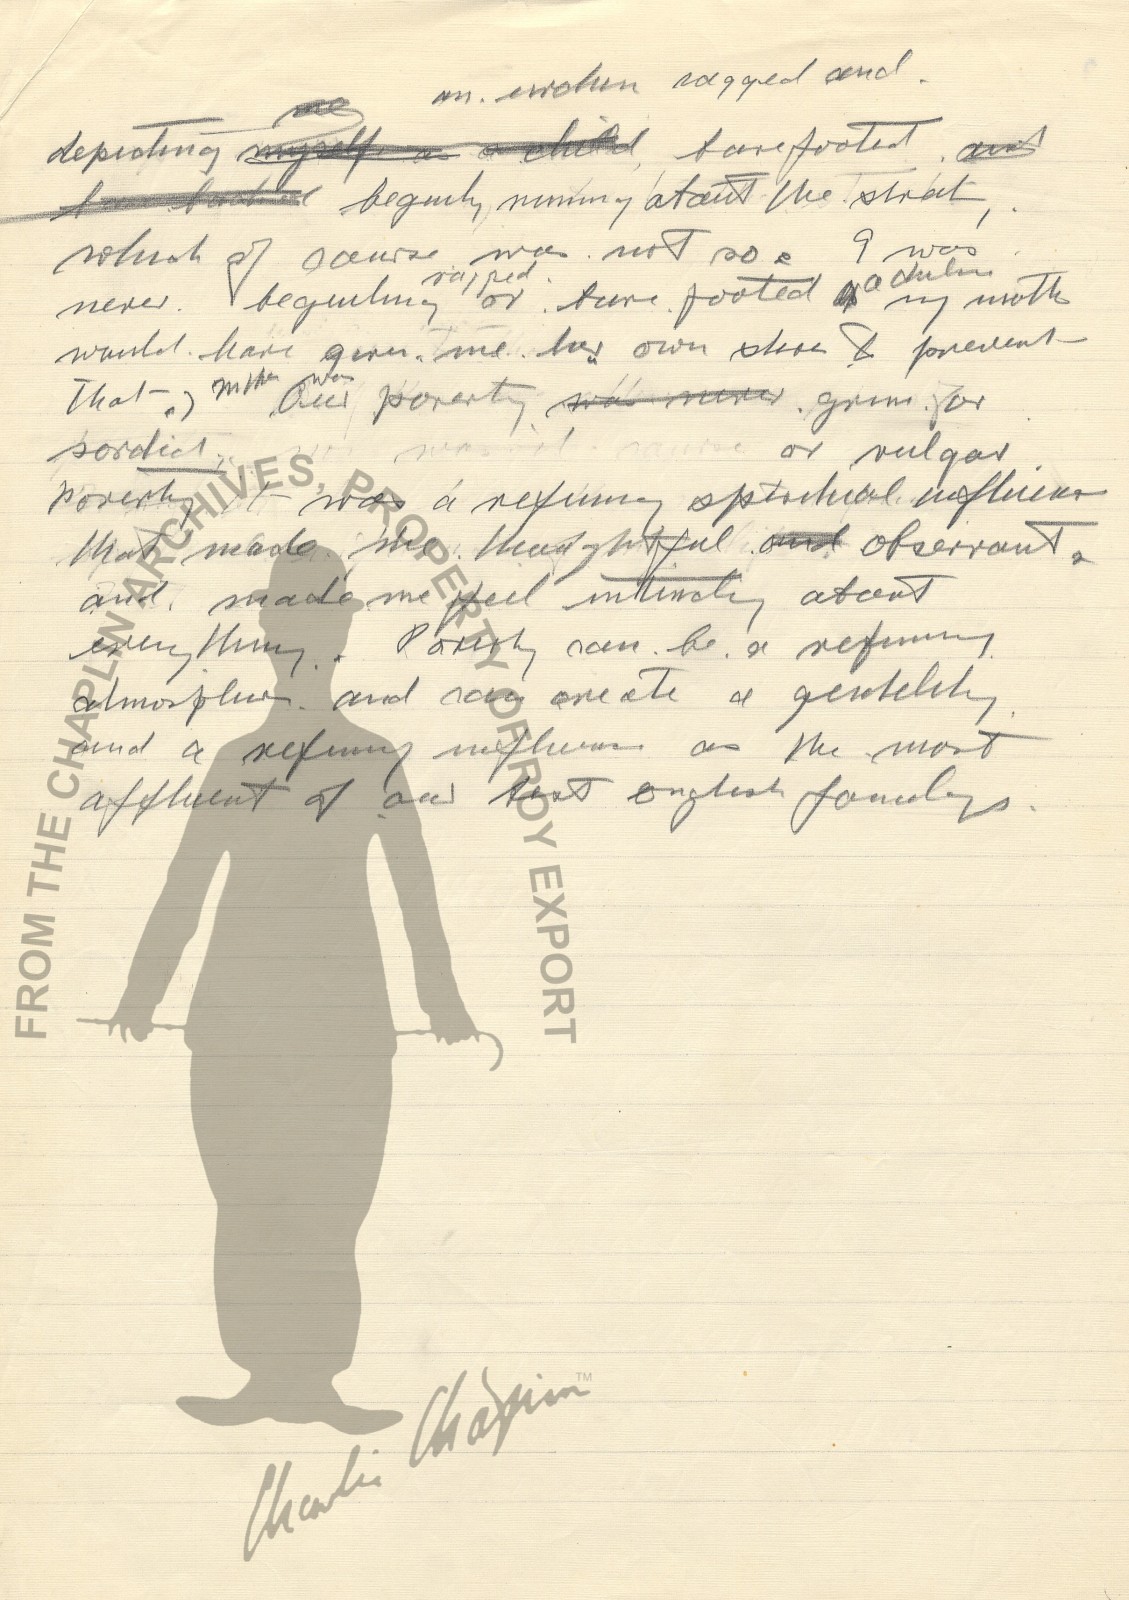 an. urchin ragged and.
me
depicting myself as a child, barefooted. and
begucly, running about the street,.
which of course was not so. I was
ragged.
never. begucling or bare footed my moth
would. have given. me. her own shoes to prevent
that
mother was
Our poverty was never. grim. or
sordid, or vulgar.
poverty it was a refining spiritual. influence
that made. me. thoughtful. and observant,
and. made me feel intimately about
everything. Poverty can. be. a refining
atmosphere. and can create a gentility.
and a refining influence as the most
affluent of our best english familys.
FROM THE CHAPLIN ARCHIVES, PROPERTY OF ROY EXPORT
Charlie Chaplin™